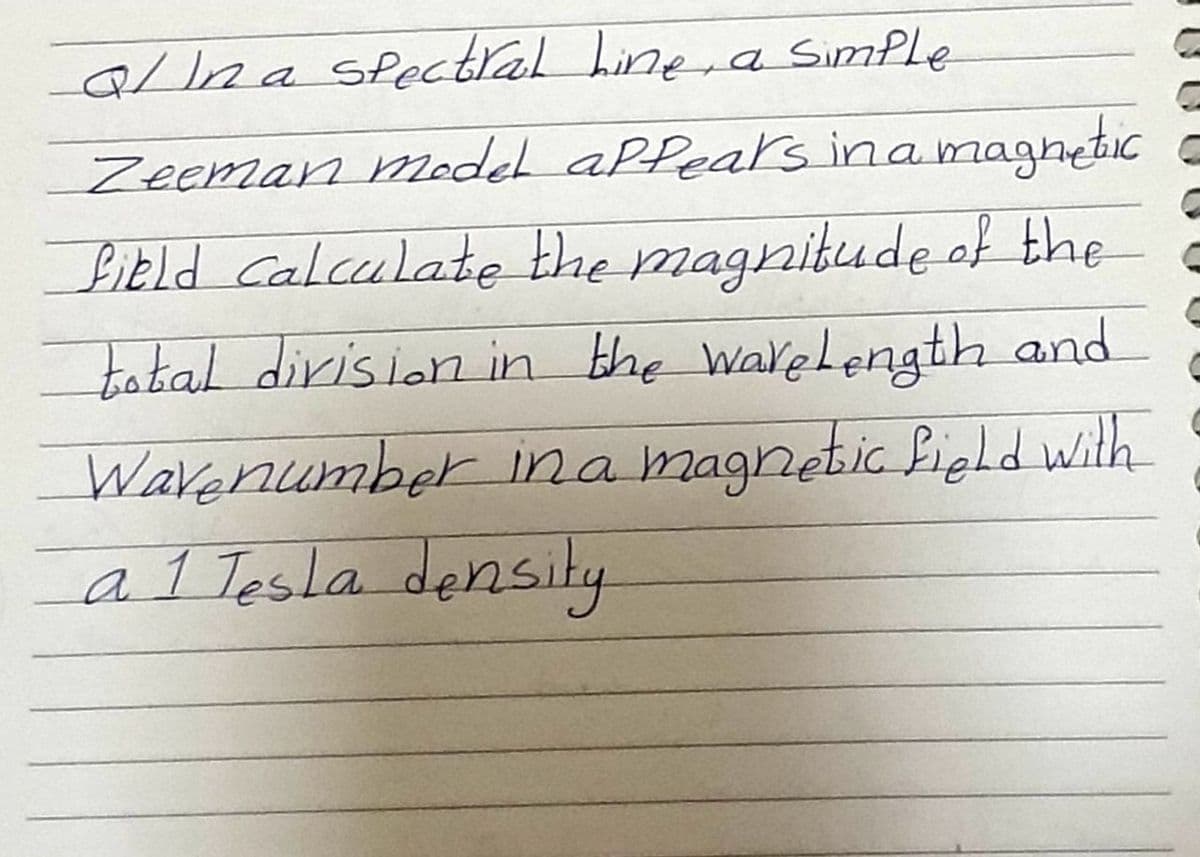 Q/ In a spectral Line, a Simple
Zeeman model appears in a magnetic
field Calculate the magnitude of the
total division in the waveLength and
Wavenumber in a magnetic field with
a 1 Tesla density